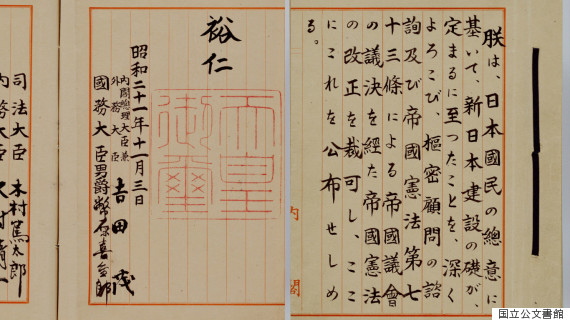 朕は、日本國民の總意に
基いて、新日本建設の礎が、
定まるに至つたことを、深く
よろこび、樞密顧問の諮
詢及び帝國憲法第七
十三條による帝國議會
の議決を経た帝國憲法
の改正を裁可し、ここ
にこれを公布せしめ
る。
裕仁
天皇御璽
昭和二十一年十一月三日
内閣總理大臣兼
外務大臣
吉田茂
國務大臣男爵幣原喜重郎
司法大臣 木村篤太郎
内務大臣
内閣
国立公文書館